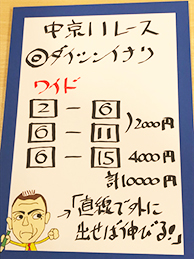 中京11レース
◎ダイシンイナリ
ワイド
2 - 6
6 - 11 ) 2000円
6 - 15 4000円
計10000円
→「直線で外に
出せば伸びる!」